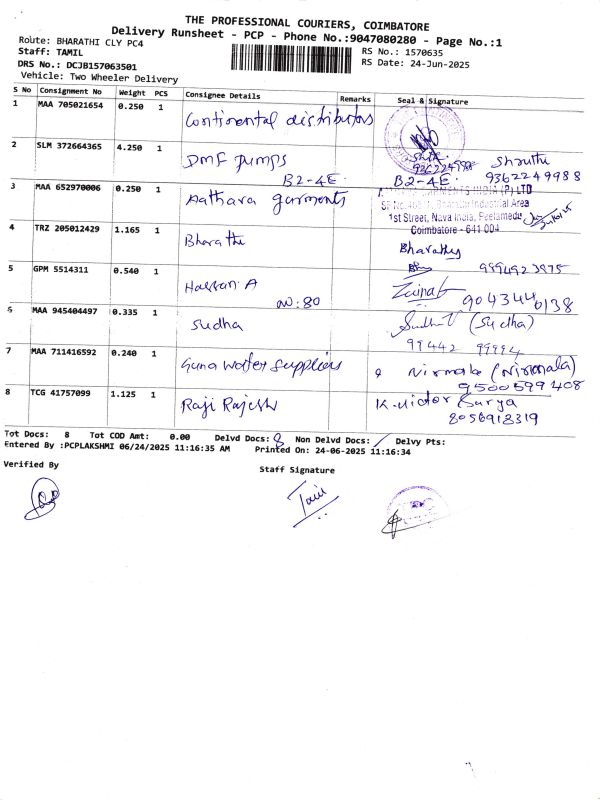 THE PROFESSIONAL COURIERS, COIMBATORE
Delivery Runsheet - PCP - Phone No.:9047080280 - Page No.:1
Route: BHARATHI CLY PC4
RS No.: 1570635
Staff: TAMIL
RS Date: 24-Jun-2025
DRS No.: DCJB157063501
Vehicle: Two Wheeler Delivery
S No Consignment No Weight PCS Consignee Details Remarks Seal & Signature
1 MAA 705021654 0.250 1 Continental distributors
2 SLM 372664365 4.250 1 DMF pumps Shruthi
B2-4E B2-4E 9362249988
3 MAA 652970006 0.250 1 Aathava garments
GARMENTS INDIA (P) LTD
Industrial Area
1st Street, Nava India, Peelamedu
Coimbatore - 641 004
4 TRZ 205012429 1.165 1 Bharathi Bharathy
9994923975
5 GPM 5514311 0.540 1 Hassan A Zainab
NO:80 9043446138
6 MAA 945404497 0.335 1 Sudha (Sudha)
99442 99994
7 MAA 711416592 0.240 1 Guna water suppliers Nirmala (Nirmala)
9500599408
8 TCG 41757099 1.125 1 Raji Rajesh K. Victor Surya
8056918319
Tot Docs: 8 Tot COD Amt: 0.00 Delvd Docs: 8 Non Delvd Docs: / Delvy Pts:
Entered By :PCPLAKSHMI 06/24/2025 11:16:35 AM Printed On: 24-06-2025 11:16:34
Verified By
Staff Signature
Tamil